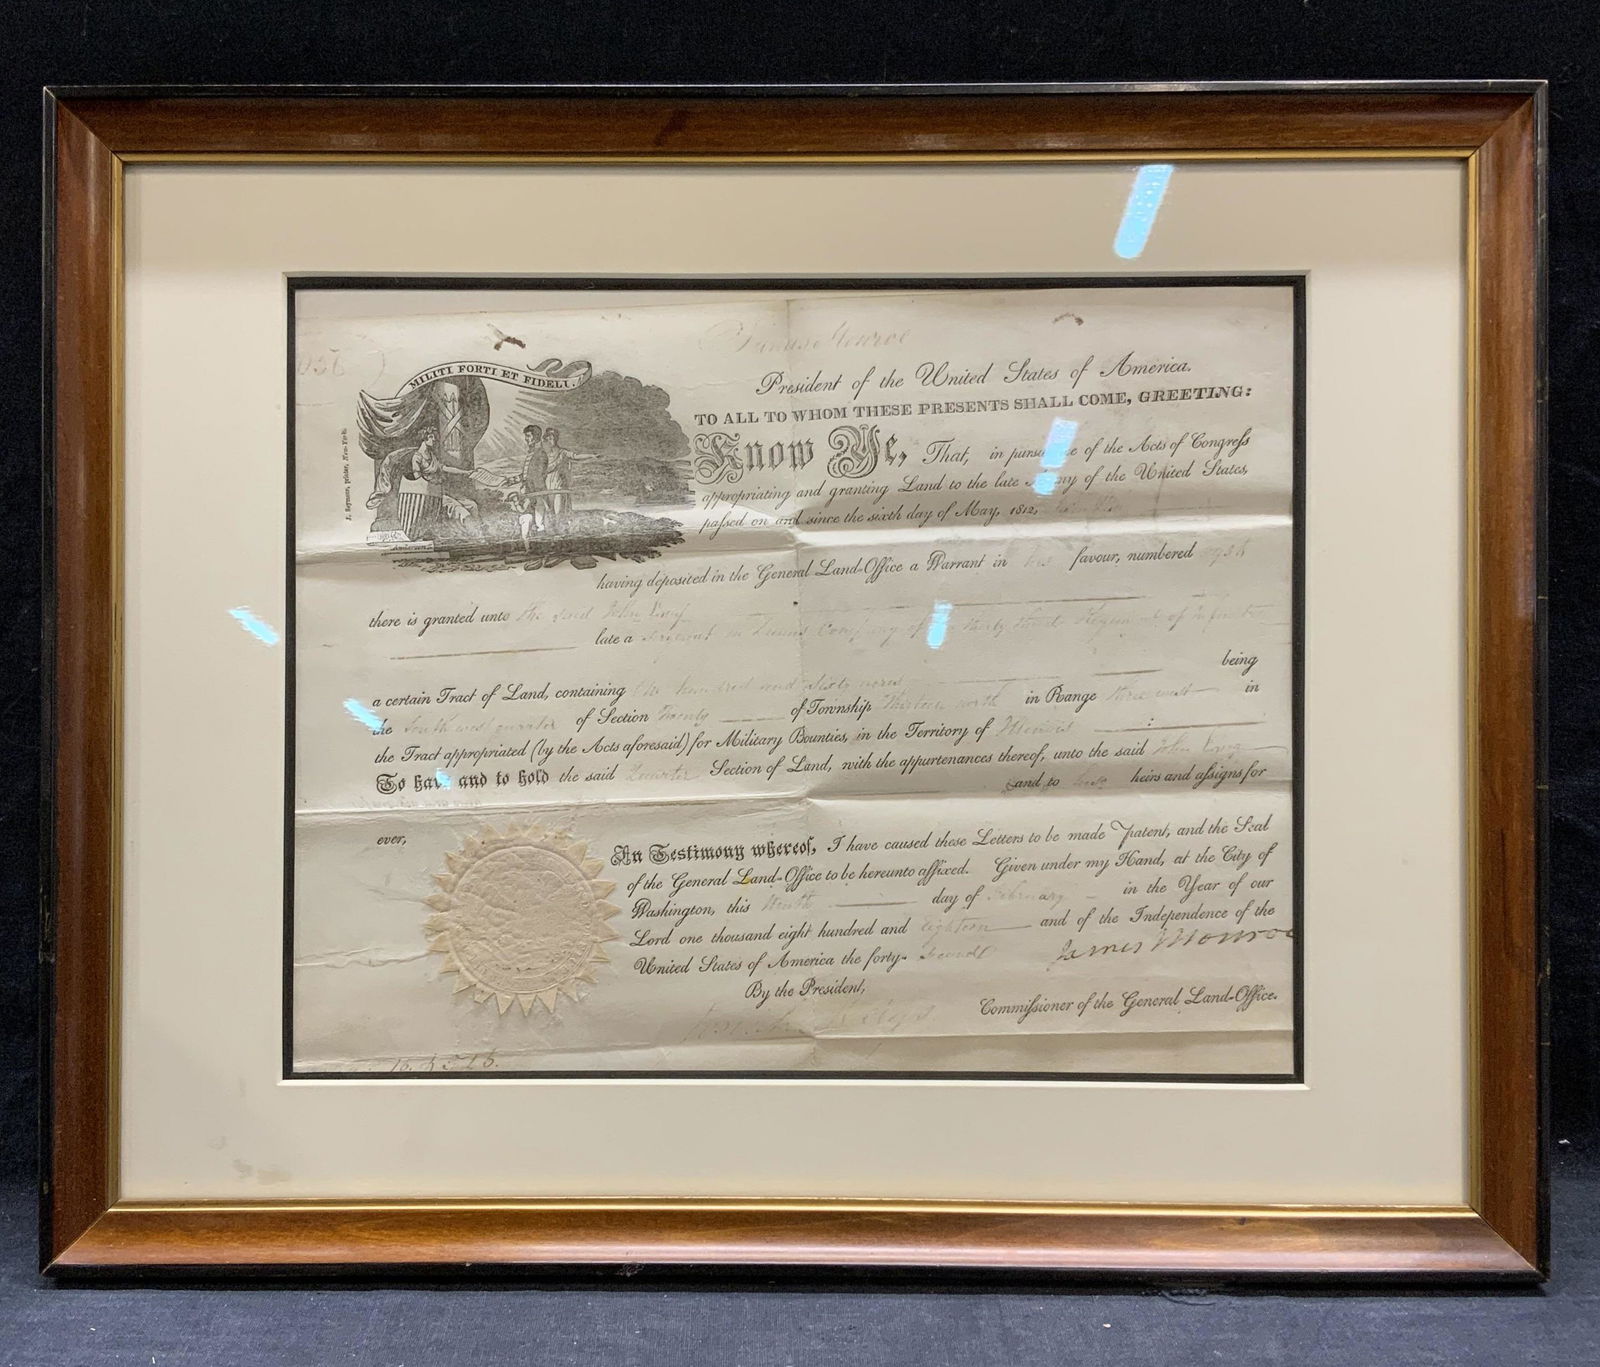 James Monroe
MILITI FORTI ET FIDELI.
President of the United States of America.
TO ALL TO WHOM THESE PRESENTS SHALL COME, GREETING:
Know Ye, That, in pursuance of the Acts of Congress
appropriating and granting Land to the late Army of the United States,
passed on and since the sixth day of May, 1812,
J. Seymour, printer, New-York.
Anderson
having deposited in the General Land-Office a Warrant in his favour, numbered
there is granted unto the said John
late a Sergeant in Company of Regiment of Infantry
being
a certain Tract of Land, containing One hundred and sixty acres
the South west quarter of Section Twenty of Township Thirteen north in Range three west in
the Tract appropriated (by the Acts aforesaid) for Military Bounties, in the Territory of Illinois
To have and to hold the said Quarter Section of Land, with the appurtenances thereof, unto the said John
and to his heirs and assigns for
ever,
In Testimony whereof, I have caused these Letters to be made Patent, and the Seal
of the General Land-Office to be hereunto affixed. Given under my Hand, at the City of
Washington, this day of February in the Year of our
Lord one thousand eight hundred and Eighteen and of the Independence of the
United States of America the forty-Second
James Monroe
By the President,
Commissioner of the General Land-Office.